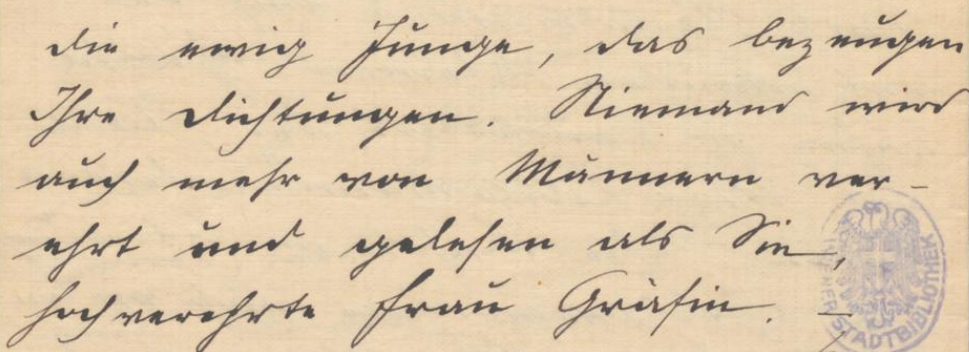 die ewig Junge, das bezeugen
Ihre Dichtungen. Niemand wird
auch mehr von Männern ver-
ehrt und gelesen als Sie,
hochverehrte Frau Gräfin. —
STADTBIBLIOTHEK